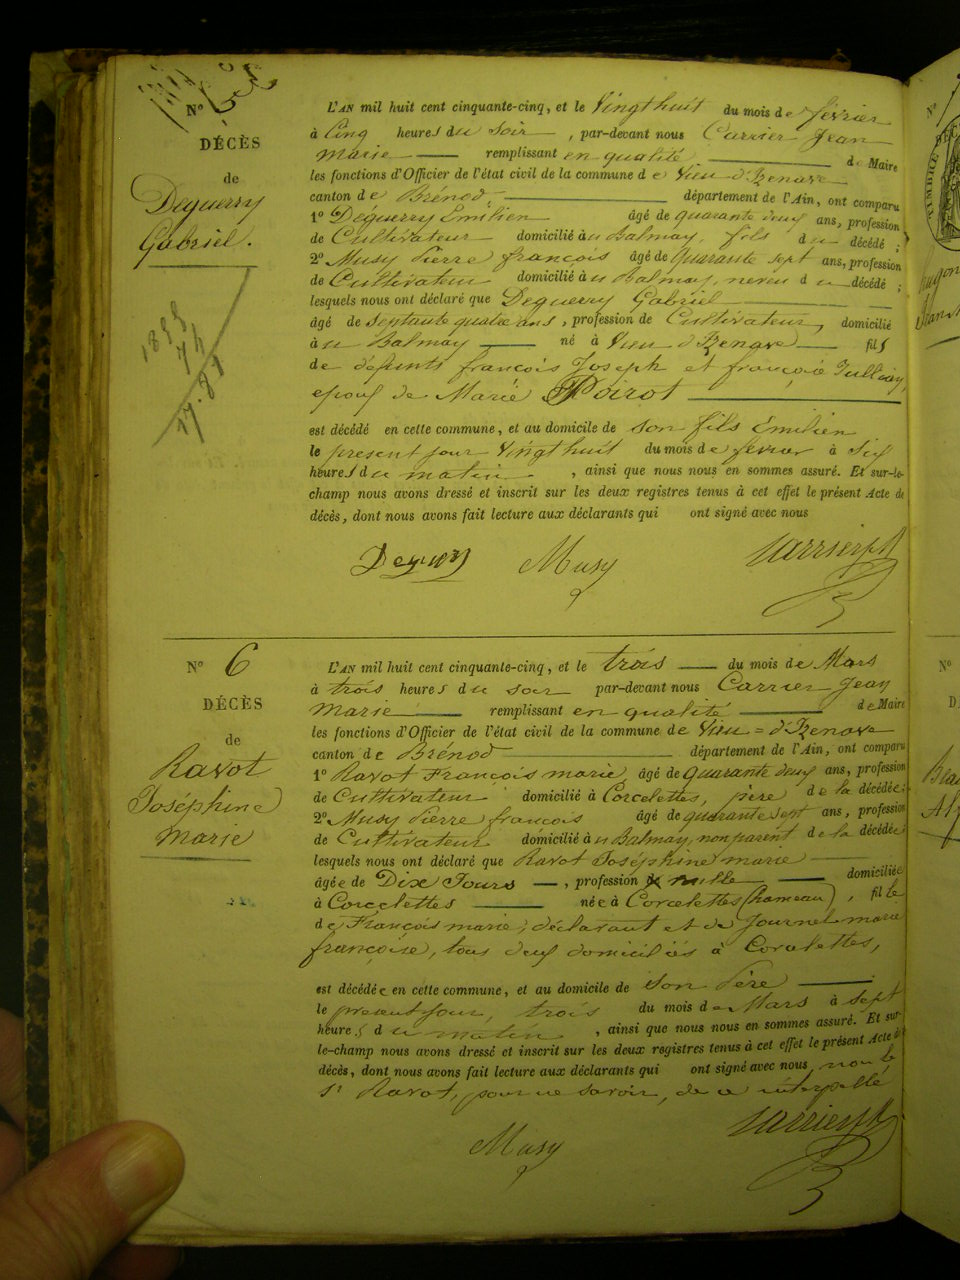 N° 5
DÉCÈS
de
Deguerry
Gabriel.
1855
74
17.81
L'AN mil huit cent cinquante-cinq, et le Vingt huit du mois de février
à Cinq heures du soir, par-devant nous Carrier Jean
Marie remplissant en qualité de Maire
les fonctions d'Officier de l'état civil de la commune de Vieu d'Izenave
canton de Brénod, département de l'Ain, ont comparu
1° Deguerry Émilien âgé de quarante deux ans, profession
de Cultivateur domicilié au Balmay, fils du décédé ;
2° Musy Pierre françois âgé de quarante sept ans, profession
de Cultivateur domicilié au Balmay, neveu du décédé ;
lesquels nous ont déclaré que Deguerry Gabriel
âgé de septante quatre ans, profession de Cultivateur, domicilié
à au Balmay né à Vieu d'Izenave fils
de défunts françois Joseph et françoise Jullian,
epoux de Marie Poirot
est décédé en cette commune, et au domicile de son fils Emilien
le present jour Vingt huit du mois de fevrier à Six
heures du matin, ainsi que nous nous en sommes assuré. Et sur-le-
champ nous avons dressé et inscrit sur les deux registres tenus à cet effet le présent Acte de
décès, dont nous avons fait lecture aux déclarants qui ont signé avec nous
Deguerry Musy Carrier JM
N° 6
DÉCÈS
de
Ravot
Josephine
Marie
L'AN mil huit cent cinquante-cinq, et le trois du mois de Mars
à trois heures du soir par-devant nous Carrier Jean
Marie remplissant en qualité de Maire
les fonctions d'Officier de l'état civil de la commune de Vieu=d'Izenave
canton de Brénod département de l'Ain, ont comparu
1° Ravot François marie, âgé de quarante deux ans, profession
de Cultivateur domicilié à Corcelettes, père de la décédée ;
2° Musy Pierre françois âgé de quarante sept ans, profession
de Cultivateur domicilié au Balmay, non parent de la décédée
lesquels nous ont déclaré que Ravot Joséphine marie
âgée de Dix Jours, profession de nulle domiciliée
à Corcelettes née à Corcelettes (hameau), fille
de François marie, déclarant et de Journet marie
françoise, tous deux domiciliés à Corcelettes,
est décédée en cette commune, et au domicile de son Père
le present jour, trois du mois de Mars à sept
heures du matin, ainsi que nous nous en sommes assuré. Et sur-
le-champ nous avons dressé et inscrit sur les deux registres tenus à cet effet le présent Acte de
décès, dont nous avons fait lecture aux déclarants qui ont signé avec nous, non le
Sr Ravot, pour ne savoir, de ce interpellé
Musy Carrier JM
N°
TIMBRE
N°